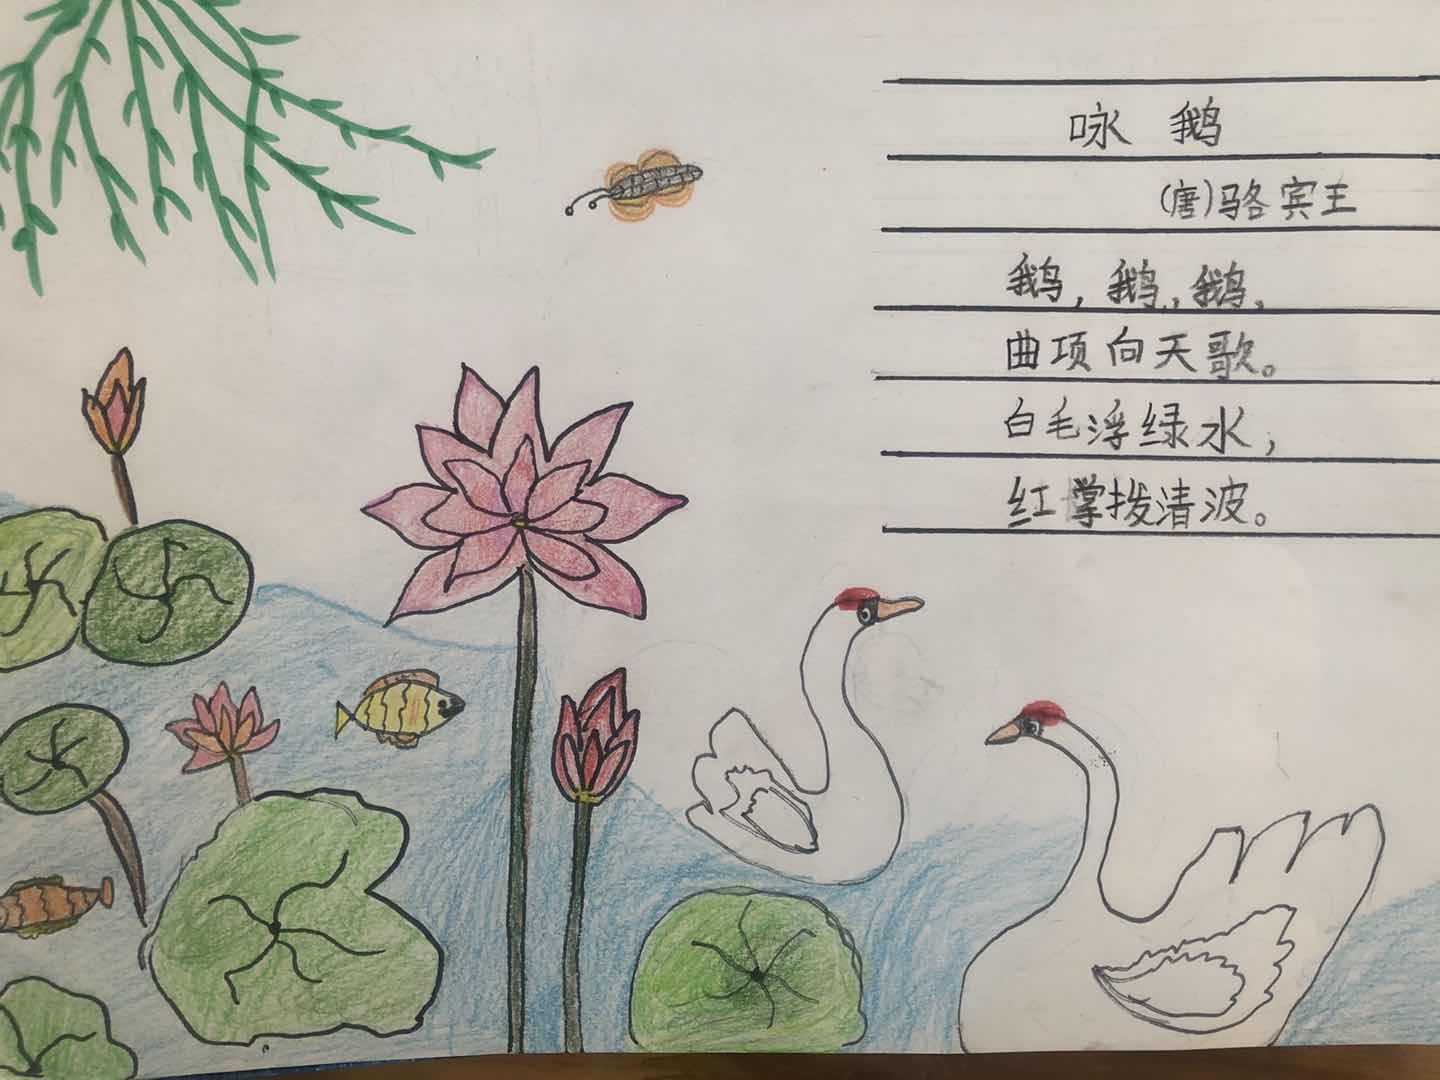 咏 鹅
(唐)骆宾王
鹅，鹅，鹅，
曲项向天歌。
白毛浮绿水，
红掌拨清波。